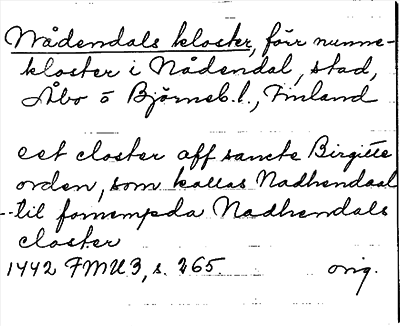 Nådendals kloster, förr nunne-
kloster i Nådendal, stad,
Åbo o Björneb. l., Finland
eet closter aff sancte Birgitte
orden, som kallas Nadhendaal
--til fornempda Nadhendals
closter
1442 FMU 3, s. 265. orig.